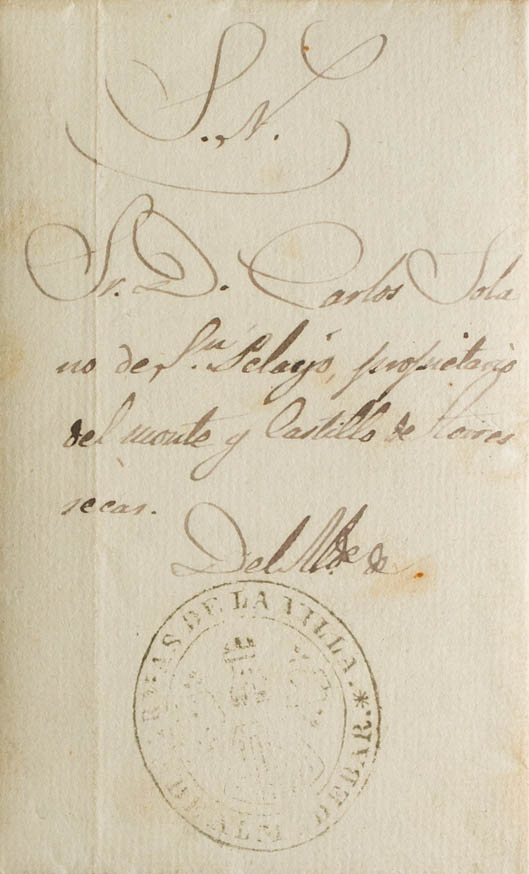 S. N.
Sr. D. Carlos Sola
no de Sn. Pelayo, propietario
del monte y Castillo de Torres
secas.
Del Alde. de
ARMAS DE LA VILLA * DE ALMUDEBAR.